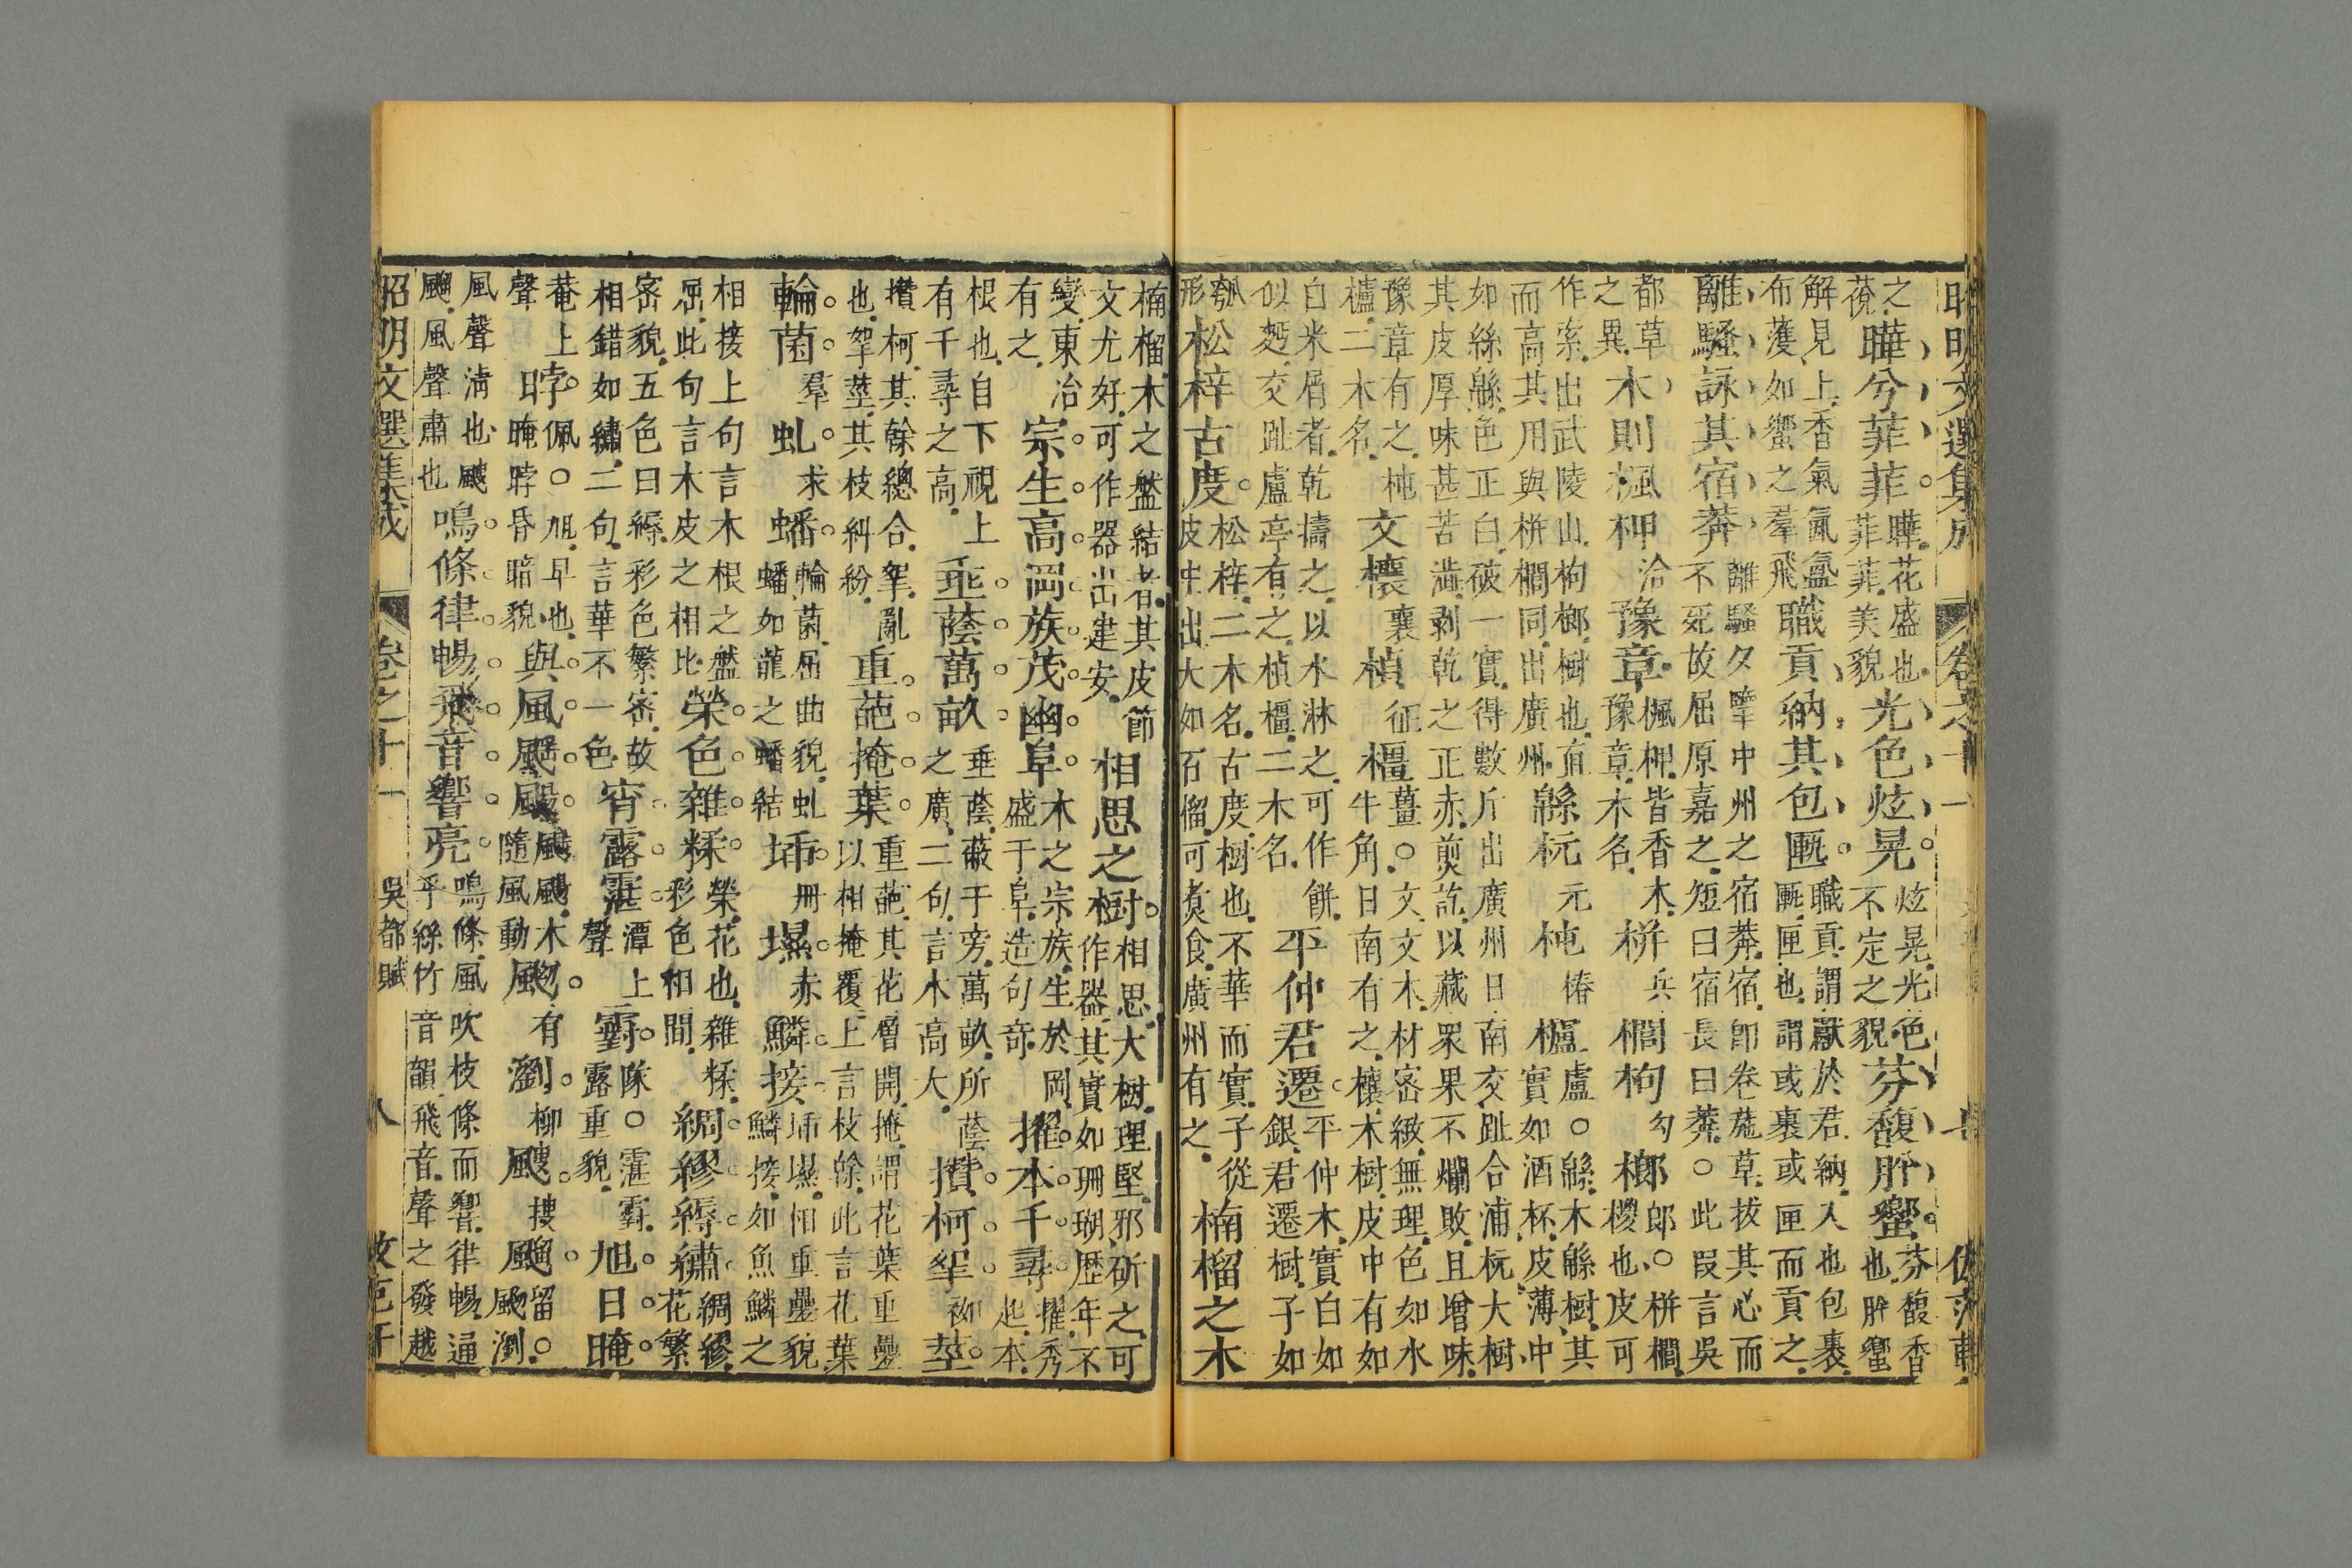 昭明文選集成 卷之十一
之
蕵曄兮菲菲曄花盛也菲菲美貌光色炫晃炫晃光色不定之貌芬馥肸蠁芬馥香也肸蠁
解見上香氣氤氳布濩如蠁之羣飛職貢納其包匭職貢謂獻於君納入也包裹匭匣也謂或裹或匣而貢之
離騷詠其宿莽離騷夕擥中州之宿莽宿即卷葹草拔其心而不死故屈原嘉之短曰宿長曰莽○此叚言吳
都草之異木則楓柙洽豫章楓柙皆香木豫章木名栟兵櫚枸勾榔郎○栟櫚椶也皮可
作索出武陵山枸榔樹也直而高其用與栟櫚同出廣州緜杬元杶椿櫨盧○緜木緜樹其實如酒杯皮薄中
如絲緜色正白破一實得數斤出廣州日南交趾合浦杬大樹其皮厚味甚苦澁剥乾之正赤煎訖以藏衆果不爛敗且增味
豫章有之杶櫨二木名文欀襄楨征橿薑○文文木材密緻無理色如水牛角日南有之欀木樹皮中有如
白米屑者乾擣之以水淋之可作餅似麪交趾盧亭有之楨橿二木名平仲君遷平仲木實白如銀君遷樹子如
瓠形松梓古度松梓二木名古度樹也不華而實子從皮中出大如石榴可煮食廣州有之楠榴之木
楠榴木之盤結者其皮節文尤好可作器出建安相思之樹相思大樹理堅邪斫之可作器其實如珊瑚歷年不
變東冶有之宗生高岡族茂幽阜木之宗族生於岡盛于阜造句奇擢本千尋擢秀起本
根也自下視上有千尋之高垂蔭萬畝垂蔭蔽于旁萬畝所蔭之廣二句言木高大攢柯挐㧗莖
攢柯其餘總合挐亂也挐莖其枝糾紛重葩掩葉重葩其花層開掩謂花葉重疊以相掩覆上言枝餘此言花葉
輪菌羣虬求蟠輪菌屈曲貌虬蟠如龍之蟠結埇册㙷赤鱗接埇㙷相重疊貌鱗接如魚鱗之
相接上句言木根之盤屈此句言木皮之相比榮色雜糅榮花也雜糅彩色相間綢繆縟繡綢繆花繁
密貌五色曰縟彩色繁密故相錯如繡二句言華不一色宵露霮潭上聲䨴隊○霮䨴露重貌旭日晻
菴上聲㫲佩○旭早也晻㫲昏暗貌與風飖颺颺木隨風動有瀏柳颼搜飀留○瀏
風聲淸也颼飀風聲肅也鳴條律暢飛音響亮鳴條風吹枝條而響律暢通乎絲竹音韻飛音聲之發越
昭明文選集成 卷之十一 吳都賦 八